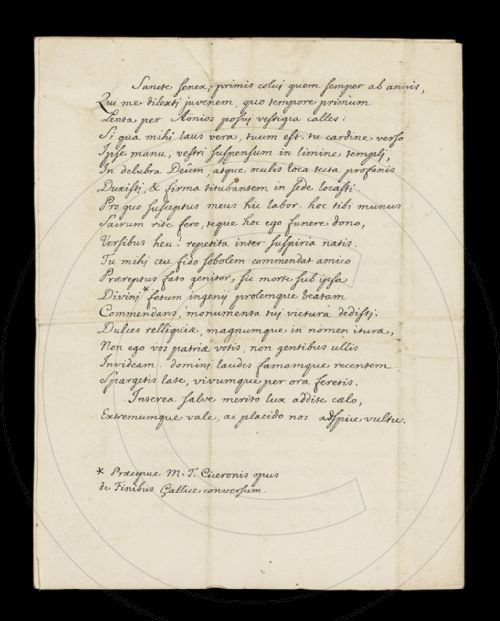 Sancte senex, primis colui quem semper ab annis,
Qui me dilexti juvenem, quo tempore primum
Lenta per Aonios posui vestigia calles:
Si qua mihi laus vera, tuum est. tu cardine verso
Ipse manu, vestri suspensum in limine templi,
In delubra Deûm, atque oculis loca tecta profanis
Duxisti, & firma titubantem in sede locasti.
Pro quo susceptus meus hic labor. hoc tibi munus
Sacrum rite fero, teque hoc ego funere dono,
Versibus heu! repetita inter suspiria natis.
Tu mihi ceu fido sobolem commendat amico
Præreptus fato genitor, sic morte sub ipsa
Divini * fœtum ingenij prolemque beatam
Commendans, monumenta tui victura dedisti.
Dulces relliquiæ, magnumque in nomen ituræ,
Non ego vos patriæ votis, non gentibus ullis
Invideam: domini laudes famamque recentem
Spargetis late, vivumque per ora feretis.
Interea salve merito lux addite cælo,
Extremumque vale, ac placido nos adspice vultu.
* Præcipue M. T. Ciceronis opus
de Finibus Gallice conversum.